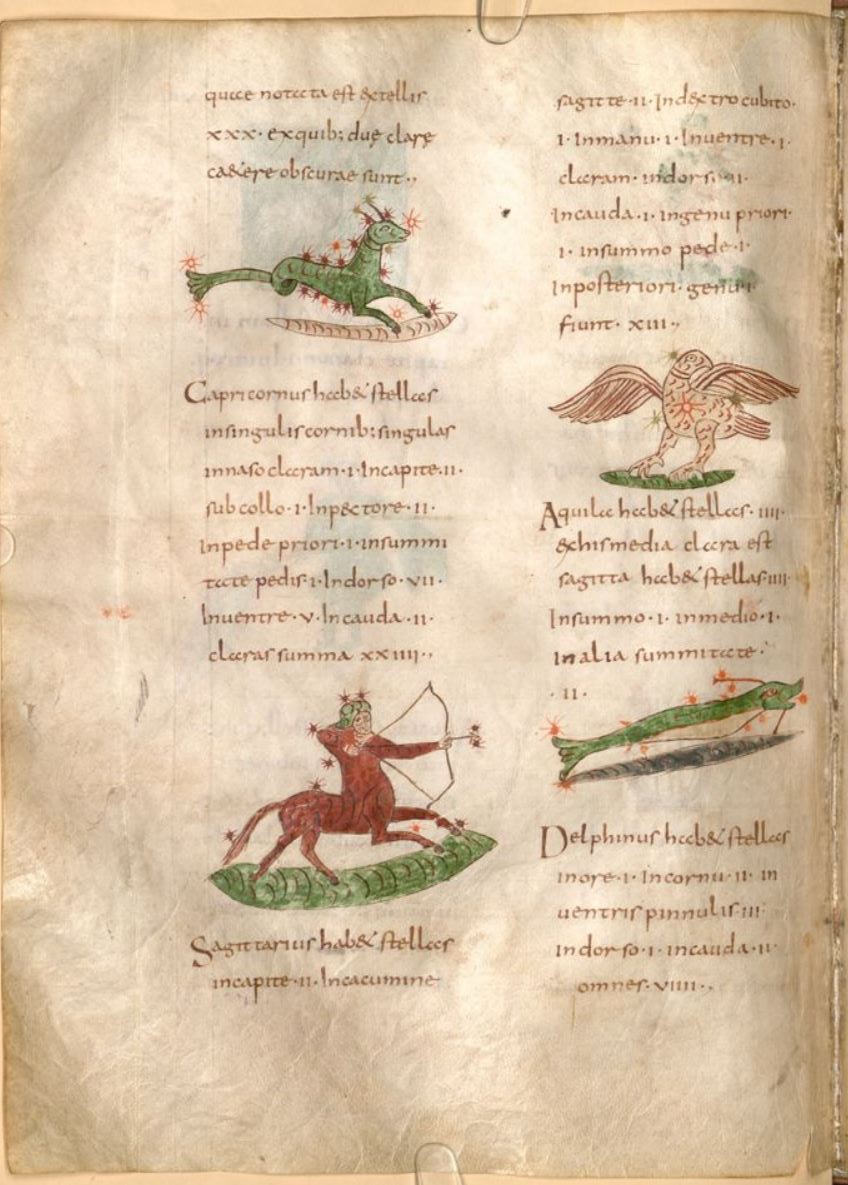 quae notata est & stellis
xxx· exquib; duę clarę
c&ere obscurae sunt·,
Capricornus hab& stellas
insingulis cornib; singulas
innaso claram·i·Incapite·ii·
sub collo·i·Inpectore·ii·
Inpede priori·i·insummi
tate pedis·i·Indorso·vii·
Inuentre·v·Incauda·ii·
claras summa xxiiii·,
Sagittarius hab& stellas
incapite·ii·Incacumine
sagitte·ii·Indextro cubito·
i·Inmanu·i·Inuentre·i·
claram·indorso·ii·
Incauda·i·ingenu priori·
i·insummo pede·i·
Inposteriori·genu·i·
fiunt·xiii·,
Aquila hab& stellas·iiii·
&his media clara est
sagitta hab& stellas·iiii·
Insummo·i·inmedio·i·
inalia summitate·
·ii·
Delphinus hab& stellas
inore·i·incornu·ii·in
uentris pinnulis·iii·
indorso·i·incauda·ii·
omnes·viiii·,